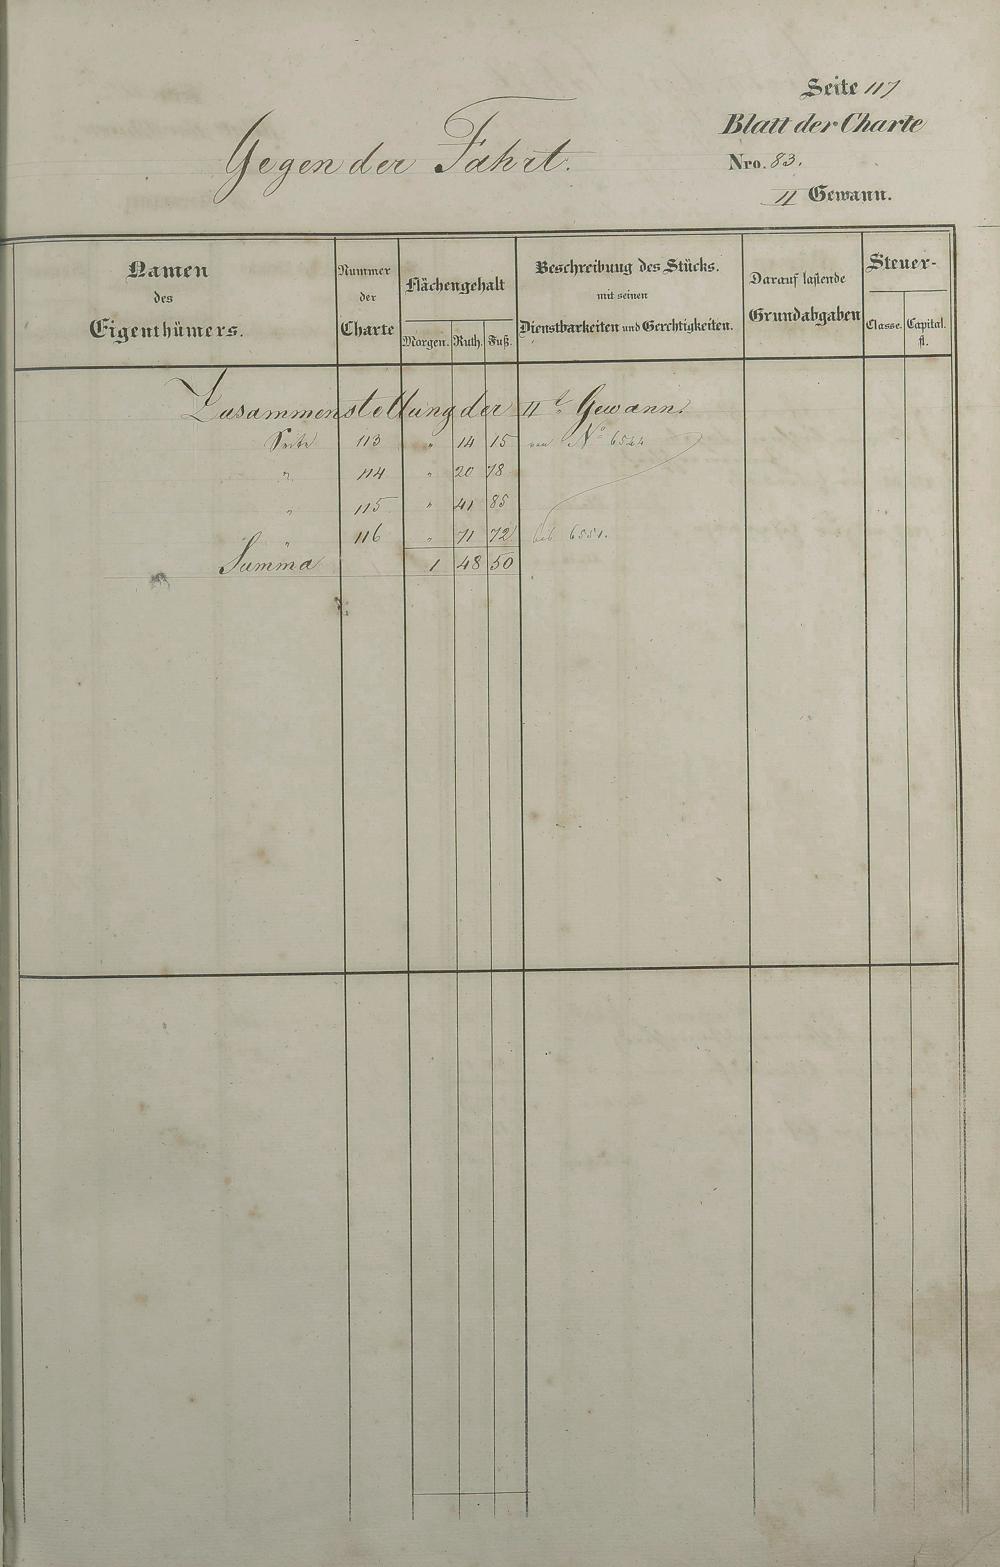 Seite 117
Blatt der Charte
Gegen der Fahrt.
Nro. 83.
II Gewann.
Namen des Eigenthümers.
Nummer der Charte
Flächengehalt
Morgen. Ruth. Fuß.
Beschreibung des Stücks. mit seinen Dienstbarkeiten und Gerechtigkeiten.
Darauf lastende Grundabgaben
Steuer-
Classe. Capital. fl.
Zusammenstellung der II t. Gewann.
Seite 113 " 14 15 von No 6544
" 114 " 20 78
" 115 " 41 85
" 116 " 71 72 bis 6551.
Summa 1 48 50